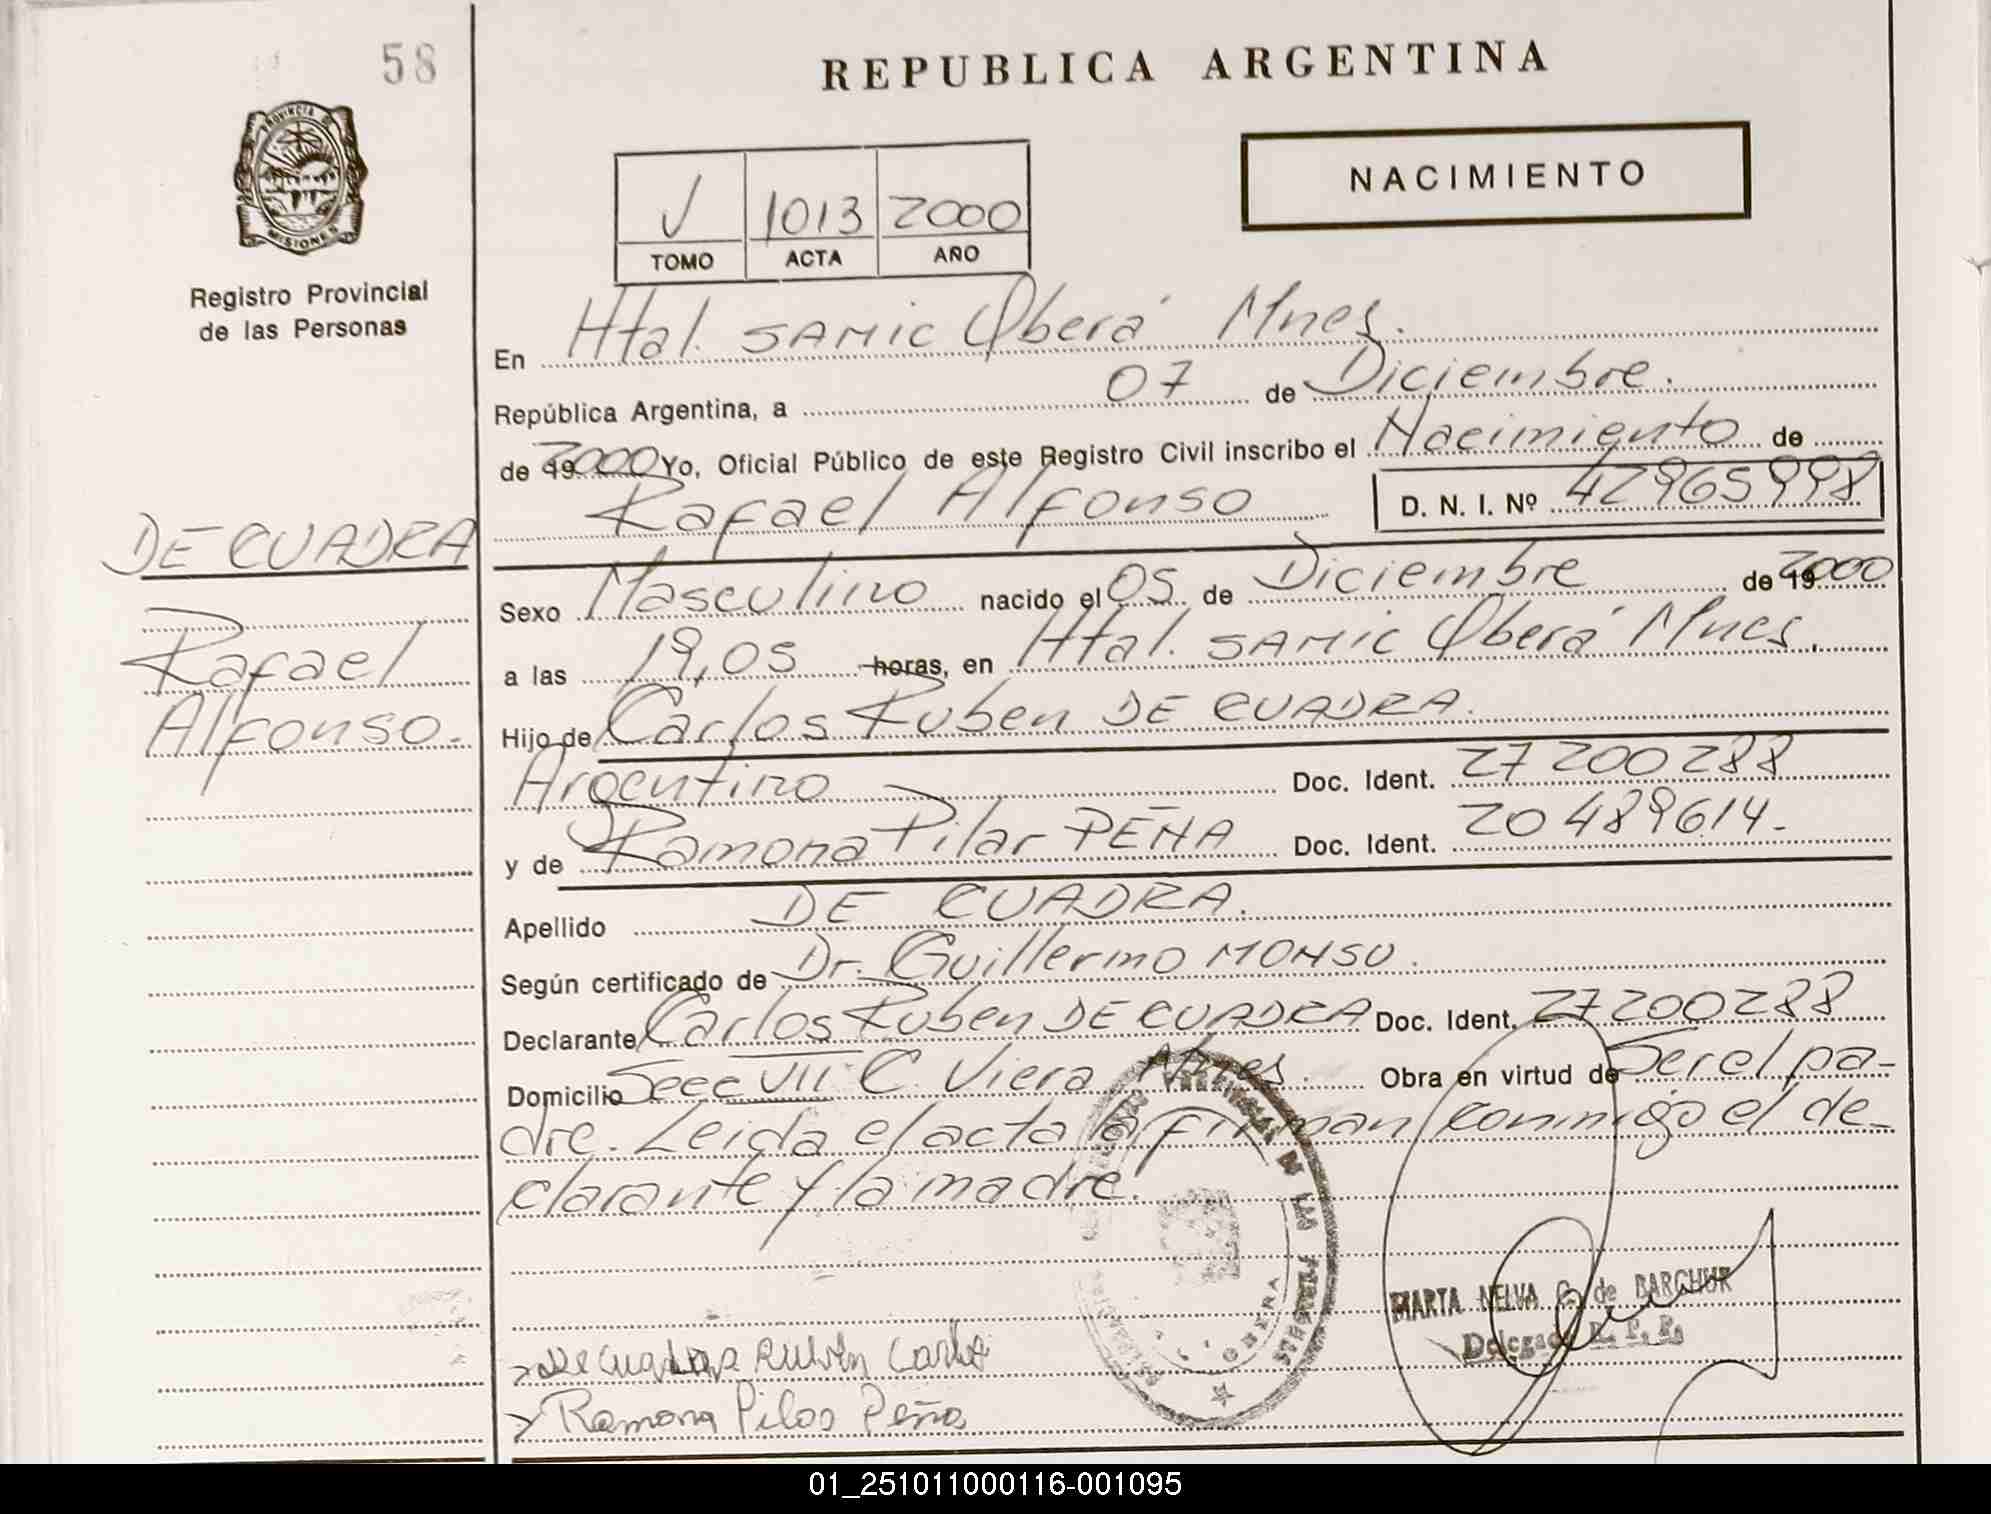 58
REPUBLICA ARGENTINA
PROVINCIA DE
MISIONES
Registro Provincial
de las Personas
NACIMIENTO
V 1013 2000
TOMO ACTA AÑO
En Htal. SAMIC Oberá Mnes.
República Argentina, a 07 de Diciembre.
de 19 2000 Yo, Oficial Público de este Registro Civil inscribo el Nacimiento de
Rafael Alfonso D. N. I. Nº 42965998
DE CUADRA
Rafael
Alfonso.
Sexo Masculino nacido el 05 de Diciembre de 19 2000
a las 19,05 horas, en Htal. SAMIC Oberá Mnes.
Hijo de Carlos Ruben DE CUADRA.
Argentino Doc. Ident. 27 200 288
y de Ramona Pilar PEÑA Doc. Ident. 20 489614.-
Apellido DE CUADRA.
Según certificado de Dr. Guillermo MONSU.
Declarante Carlos Ruben DE CUADRA Doc. Ident. 27200288
Domicilio Secc VII C Viera Mnes. Obra en virtud de Ser el pa-
dre. Leida el acta la firman conmigo el de-
clarante y la madre.
DE LAS PERSONAS
MARTA NELVA G. de BARCHUK
Delegada R. P. P.
De cuadra Rubén Carlos
Ramona Pilar Peña
01_251011000116-001095